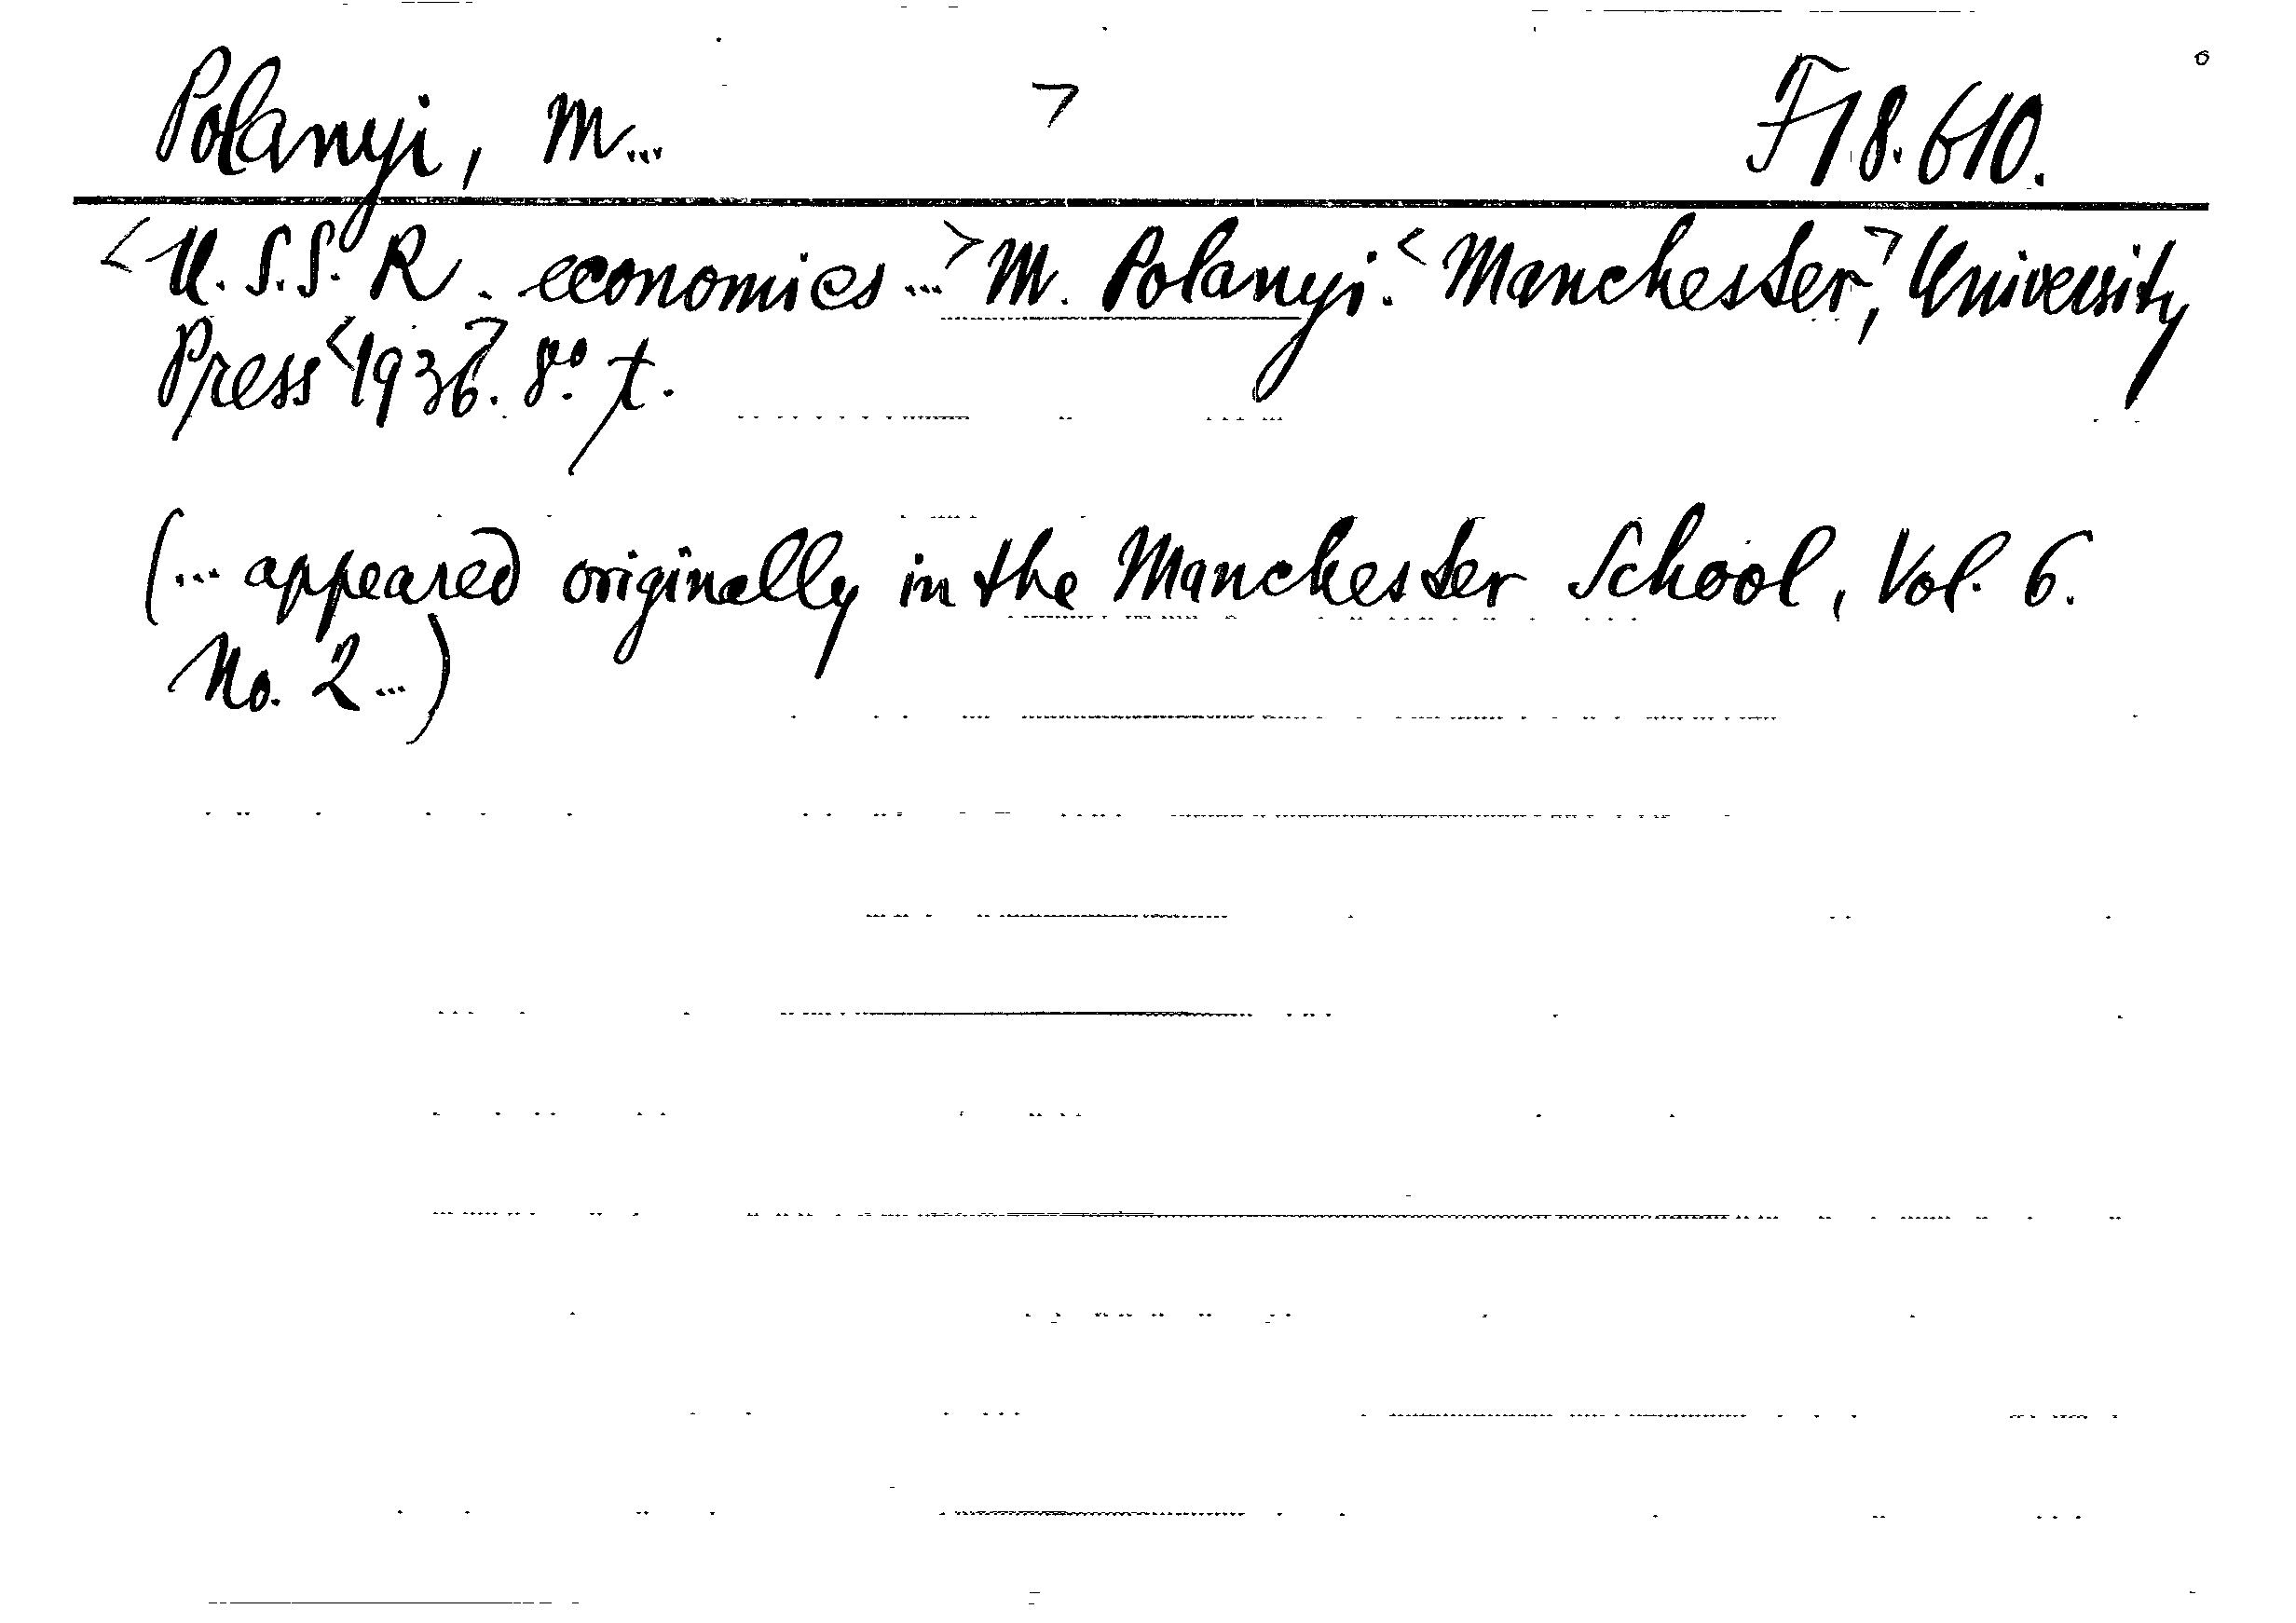 Polanyi, M... > F18.610.
<U.S.S.R. economics ...> M. Polanyi. <Manchester,> University
Press <1936>. 8° t.
(... appeared originally in the Manchester School, Vol. 6.
No. 2 ...)